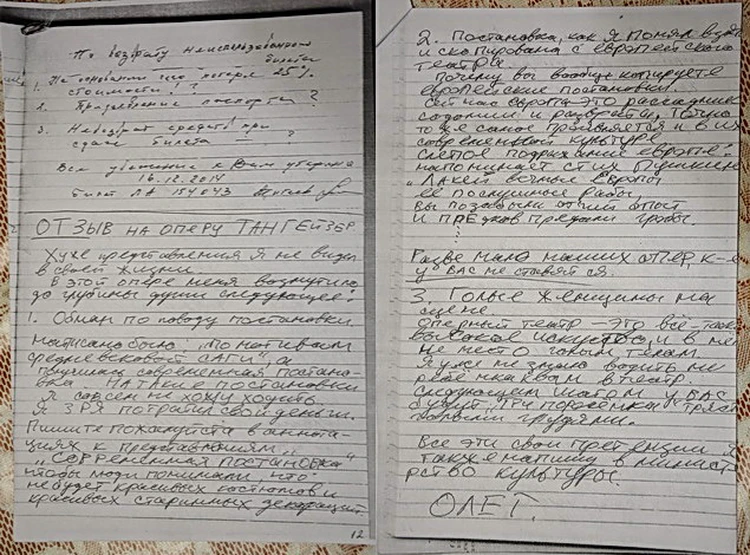 По возврату неиспользованного
билета
1. На основании чего потеря 25%
стоимости ! ?
2. Предъявление паспорта ?
3. Невозврат средств при
сдаче билета — ?
Все
16.12.2014
Билет ЛА 154043
ОТЗЫВ НА ОПЕРУ ТАНГЕЙЗЕР
Хуже представления я не видел
в своей жизни.
В этой опере меня возмутило
до глубины души следующее:
1. Обман по поводу постановки.
Написано было, "по мотивам
средневековой САГИ", а
получилась современная постано-
вка. НА ТАКИЕ ПОСТАНОВКИ
Я совсем не хожу ходить.
Я ЗРЯ потратил свои деньги.
Пишите пожалуйста в аннота-
циях к представлениям "
СОВРЕМЕННАЯ ПОСТАНОВКА"
чтобы люди понимали что
не будет красивых костюмов и
красивых старинных декораций
12
2. Постановка, как я понял взята
и скопирована с европейского
театра.
Почему вы вообще копируете
европейские постановки.
Сейчас Европа - это рассадник
содомии и разврата. Точно
то же самое проявляется и в их
современной культуре.
Слепое подражание европе
напоминает стих Пушкина
"Лакеи вечные Европы
ее послушные рабы
Вы позабыли отчий опыт
И ПРЕДКОВ ПРЕДАЛИ гробы.
Разве мало наших опер, к-е
у ВАС не ставятся.
3. Голые женщины на
сцене.
Оперный театр - это всё-таки
высокое искусство, и в нем
не место голым телам.
Я уже не знаю водить ли
ребенка к вам в театр.
Следующем шагом у ВАС
будут три поросёнка трясти
голыми грудями.
Все эти свои претензии я
также напишу в министе
рство культуры.
ОЛЕГ.